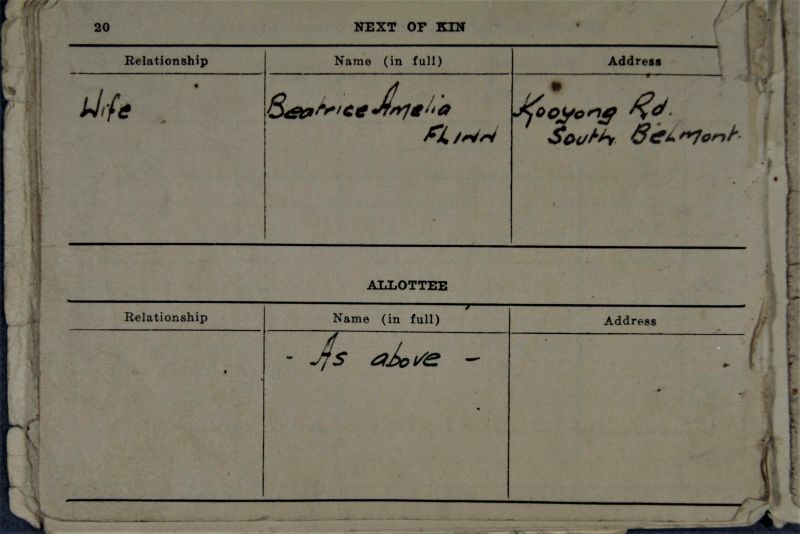 20 NEXT OF KIN
Relationship Name (in full) Address
Wife Beatrice Amelia Kooyong Rd.
FLINN South Belmont.
ALLOTTEE
Relationship Name (in full) Address
- As above -